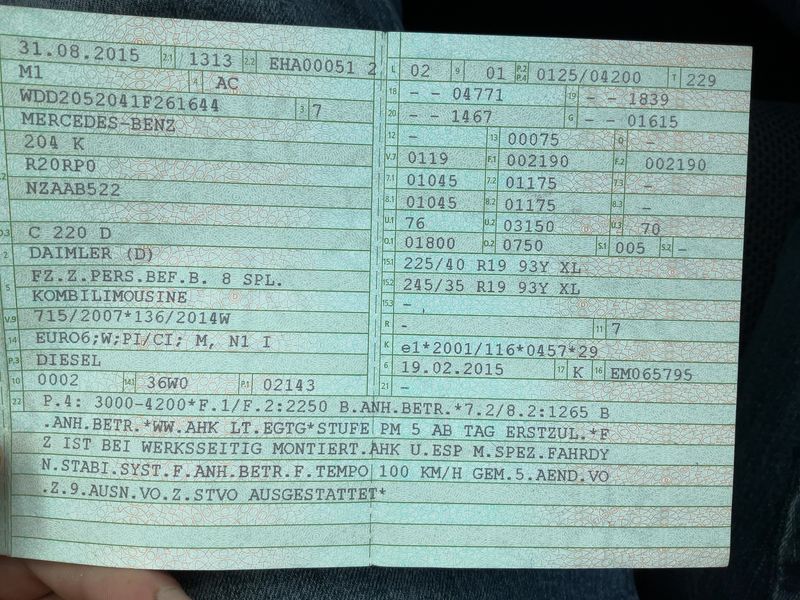 31.08.2015 2.1 1313 2.2 EHA00051 2
M1 4 AC
WDD2052041F261644 3 7
MERCEDES-BENZ
204 K
R20RP0
NZAAB522
D.3 C 220 D
2 DAIMLER (D)
5 FZ.Z.PERS.BEF.B. 8 SPL.
KOMBILIMOUSINE
V.9 715/2007*136/2014W
14 EURO6;W;PI/CI; M, N1 I
P.3 DIESEL
10 0002 14.1 36W0 P.1 02143
L 02 9 01 P.2 P.4 0125/04200 T 229
18 - - 04771 19 - - 1839
20 - - 1467 G - - 01615
12 - 13 00075 Q -
V.7 0119 F.1 002190 F.2 002190
7.1 01045 7.2 01175 7.3 -
8.1 01045 8.2 01175 8.3 -
U.1 76 U.2 03150 U.3 70
O.1 01800 O.2 0750 S.1 005 S.2 -
15.1 225/40 R19 93Y XL
15.2 245/35 R19 93Y XL
15.3 -
R - 11 7
K e1*2001/116*0457*29
6 19.02.2015 17 K 16 EM065795
21 -
22 P.4: 3000-4200*F.1/F.2:2250 B.ANH.BETR.*7.2/8.2:1265 B
.ANH.BETR.*WW.AHK LT.EGTG*STUFE PM 5 AB TAG ERSTZUL.*F
Z IST BEI WERKSSEITIG MONTIERT.AHK U.ESP M.SPEZ.FAHRDY
N.STABI.SYST.F.ANH.BETR.F.TEMPO 100 KM/H GEM.5.AEND.VO
.Z.9.AUSN.VO.Z.STVO AUSGESTATTET*